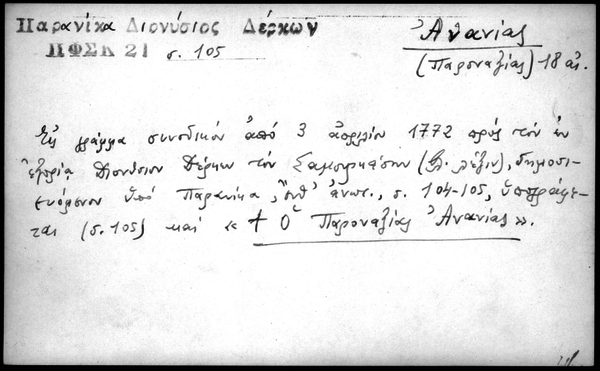 Παρανίκα Διονύσιος Δέρκων
ΠΦΣΚ 21 σ. 105
Ἀνανίας
(Παροναξίας) 18 αἰ.
Εἰς γράμμα συνοδικόν ἀπό 3 ἀπριλίου 1772 πρός τόν ἐν
ἐξορίᾳ Διονύσιον Δέρκων τόν (βλ. λέξιν), δημοσι-
ευόμενον ὑπό Παρανίκα, ἔνθ' ἀνωτ., σ. 104-105, ὑπογράφε-
ται (σ. 105) καί « † Ὁ Παροναξίας Ἀνανίας ».